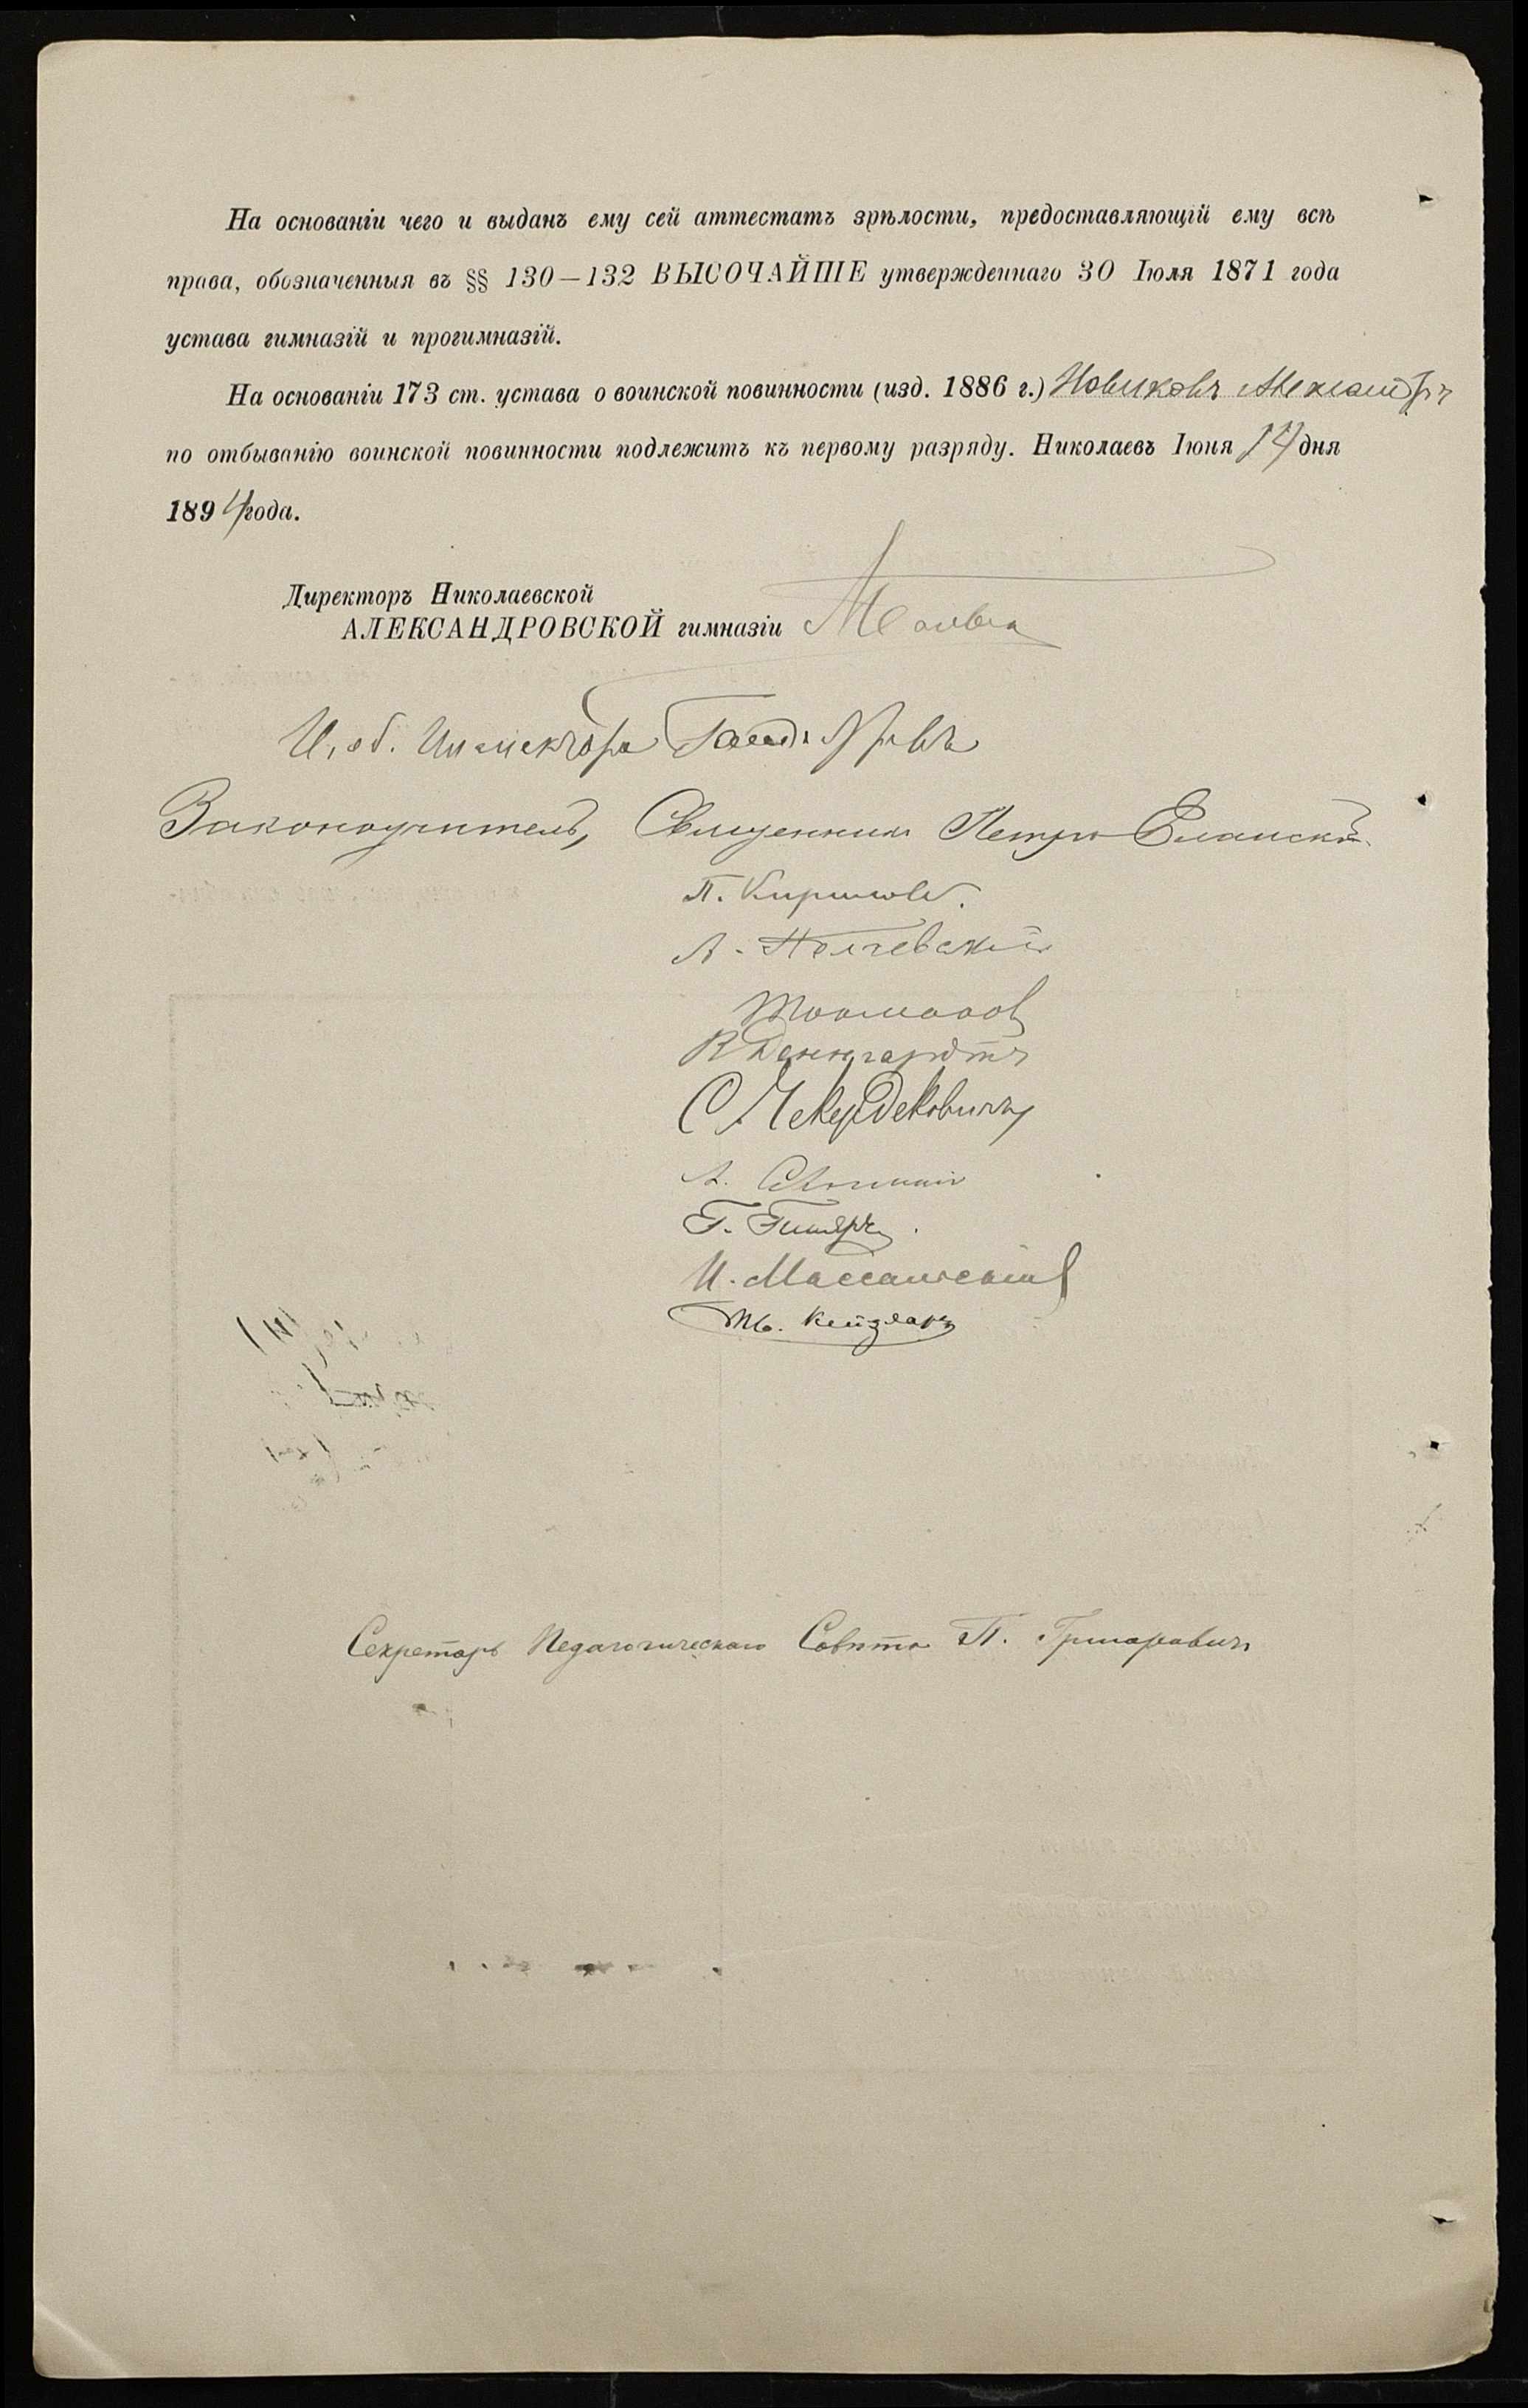 На основаніи чего и выданъ ему сей аттестатъ зрѣлости, предоставляющій ему всѣ
права, обозначенныя въ §§ 130—132 ВЫСОЧАЙШЕ утвержденнаго 30 Іюля 1871 года
устава гимназій и прогимназій.
На основаніи 173 ст. устава о воинской повинности (изд. 1886 г.) Новиковъ Александръ
по отбыванію воинской повинности подлежитъ къ первому разряду. Николаевъ Іюня 14 дня
1894 года.
Директоръ Николаевской
АЛЕКСАНДРОВСКОЙ гимназіи
И. об. Инспектора
Законоучитель, Священникъ Петръ Еланскій.
П. Кирилловъ.
А.
С. Чекердековичъ
А.
Г.
И.
Секретарь Педагогическаго Совѣта П. Григоровичъ